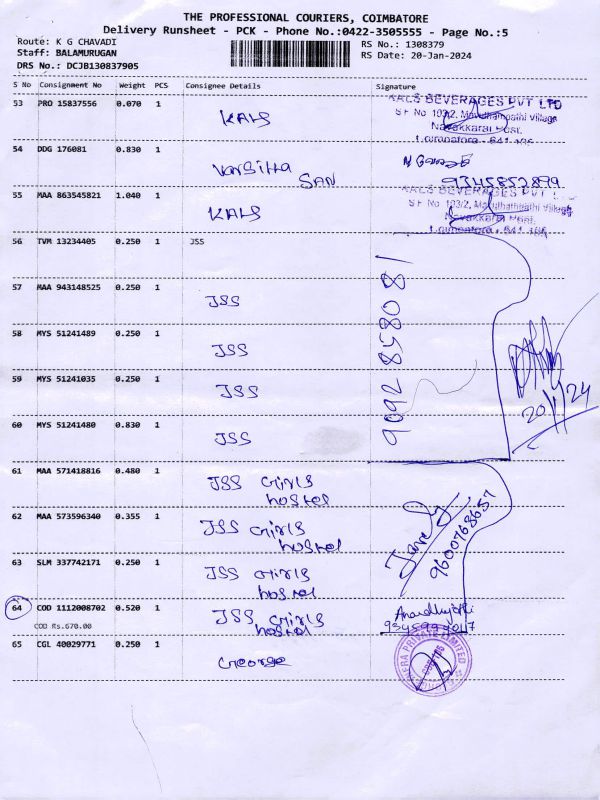 THE PROFESSIONAL COURIERS, COIMBATORE
Delivery Runsheet - PCK - Phone No.:0422-3505555 - Page No.:5
Route: K G CHAVADI
RS No.: 1308379
Staff: BALAMURUGAN
RS Date: 20-Jan-2024
DRS No.: DCJB130837905
S No Consignment No Weight PCS Consignee Details Signature
53 PRO 15837556 0.070 1 KALS
KALS BEVERAGES PVT LTD
S F No 193/2, Mavuthampathi Village
Navakkarai Post,
Coimbatore - 641 105
54 DDG 176081 0.830 1 Varsitha SAN
9345852899
55 MAA 863545821 1.040 1 KALS
KALS BEVERAGES PVT LTD
S F No 193/2, Mavuthampathi Village
Navakkarai Post,
Coimbatore - 641 105
56 TVM 13234405 0.250 1 JSS
57 MAA 943148525 0.250 1 JSS
58 MYS 51241489 0.250 1 JSS
59 MYS 51241035 0.250 1 JSS
60 MYS 51241480 0.830 1 JSS
9092858081
20/1/24
61 MAA 571418816 0.480 1 JSS Girls hostel
62 MAA 573596340 0.355 1 JSS Girls hostel
63 SLM 337742171 0.250 1 JSS Girls hostel
9600768657
64 COD 1112008702 0.520 1 JSS Girls hostel
COD Rs.670.00
65 CGL 40029771 0.250 1 George
PRIVATE LIMITED